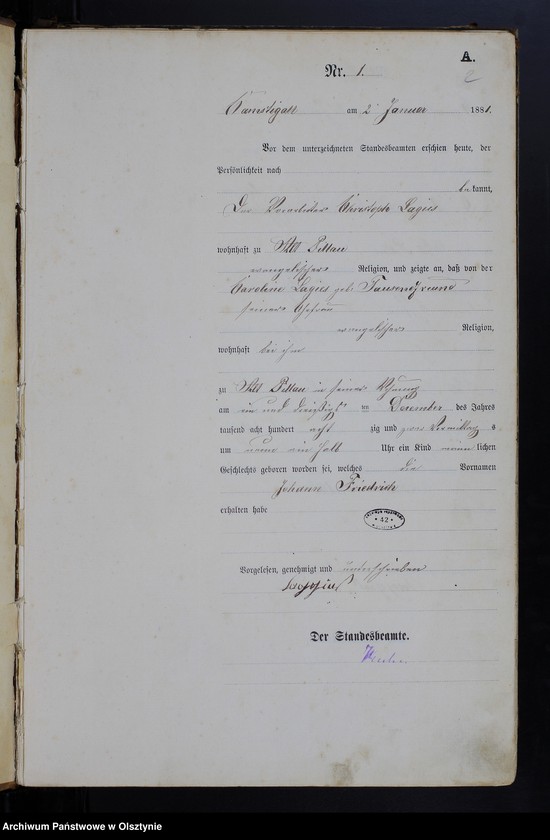 A.
2
Nr. 1.
am 2 Januar 1881.
Vor dem unterzeichneten Standesbeamten erschien heute, der
Persönlichkeit nach
bekannt,
Der Christoph Lagies
wohnhaft zu Alt Pillau
evangelischer Religion, und zeigte an, daß von der
Caroline Lagies geb. Tausendfreund
seiner Ehefrau
evangelischer Religion,
wohnhaft bei ihm
zu Alt Pillau in seiner Wohnung
am ein und dreißigsten Dezember des Jahres
tausend acht hundert achtzig und zwar Vormittags
um neun ein halb Uhr ein Kind männlichen
Geschlechts geboren worden sei, welches die Vornamen
Johann Friedrich
erhalten habe
42
Vorgelesen, genehmigt und unterschrieben
Der Standesbeamte.
Archiwum Państwowe w Olsztynie